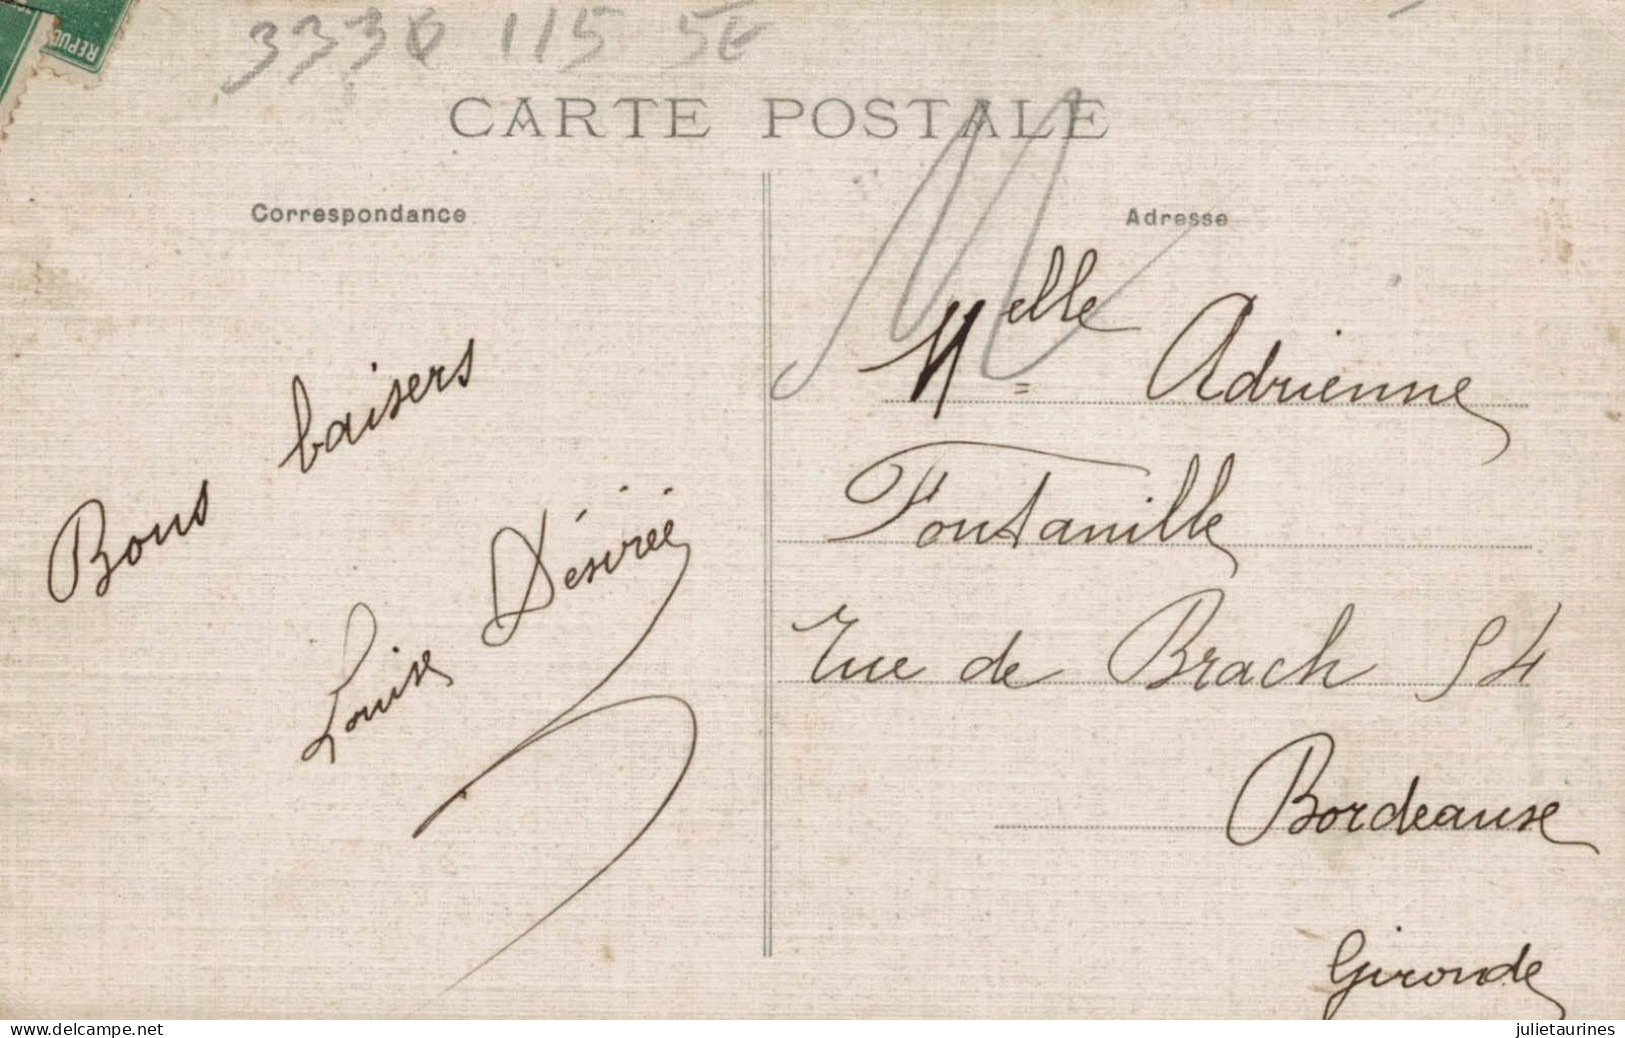 REPUB
3330 115 5€
CARTE POSTALE
Correspondance
Adresse
Bons baisers
Louise Désirée
Melle Adrienne
Fontanille
rue de Brach 54
Bordeause
Gironde
www.delcampe.net
julietaurines